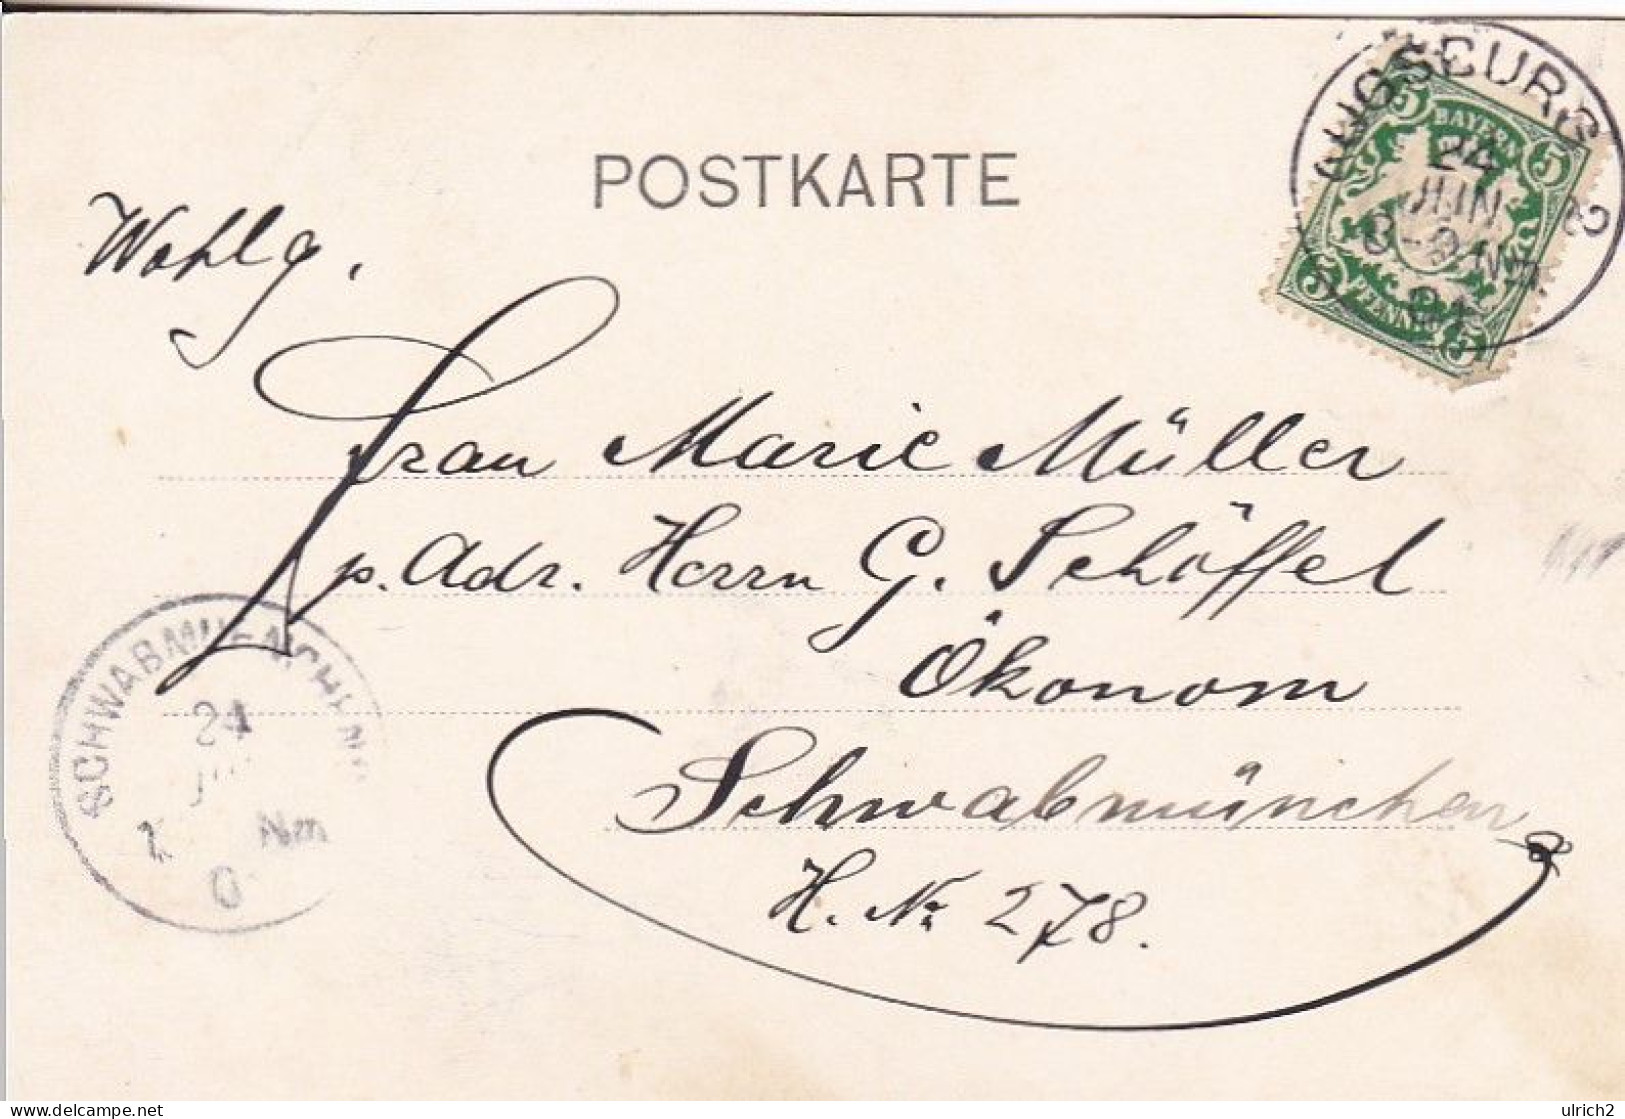 POSTKARTE
AUGSBURG 2
24
JUN
8-9 Nm.
BAYERN
5 5
5 5
PFENNIG
Wohlg.
Frau Marie Müller
p. Adr. Herrn G. Schöffel
Ökonom
Schwabmünchen
H. Nr 278.
SCHWABMUENCHEN
24
Nm
0
www.delcampe.net
ulrich2